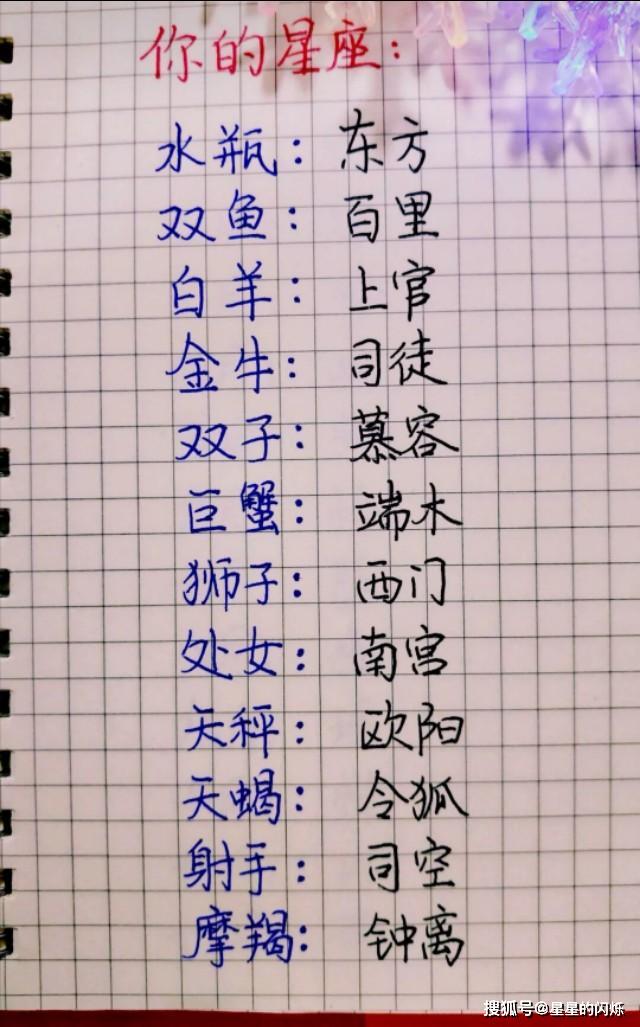 你的星座:
水瓶: 东方
双鱼: 百里
白羊: 上官
金牛: 司徒
双子: 慕容
巨蟹: 端木
狮子: 西门
处女: 南宫
天秤: 欧阳
天蝎: 令狐
射手: 司空
摩羯: 钟离
搜狐号@星星的闪烁